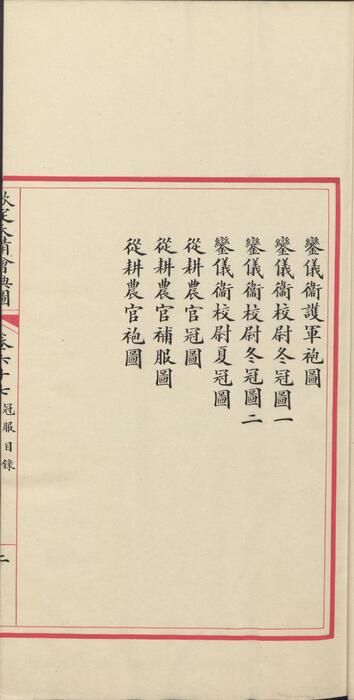 鑾儀衞護軍袍圖
鑾儀衞校尉冬冠圖一
鑾儀衞校尉冬冠圖二
鑾儀衞校尉夏冠圖
從耕農官冠圖
從耕農官補服圖
從耕農官袍圖
欽定大清會典圖
卷六十七 冠服目錄
二